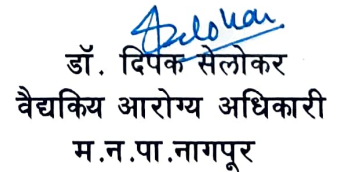 Selokar
डॉ. दिपक सेलोकर
वैद्यकिय आरोग्य अधिकारी
म.न.पा.नागपूर